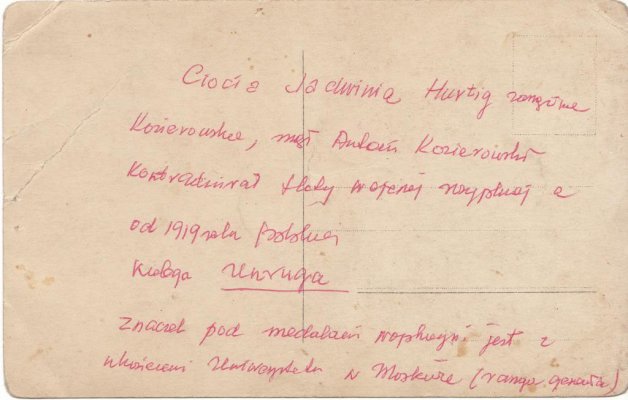 Ciocia Jadwinia Hurtig zamężna
Kozierowska, mąż Antoni Kozierowski
Kontradmirał floty wojenej rosyjskiej a
od 1919 roku polskiej
Kolega Unruga
Znaczek pod medalami jest z
ukończenia Uniwersytetu w Moskwie (ranga generała)